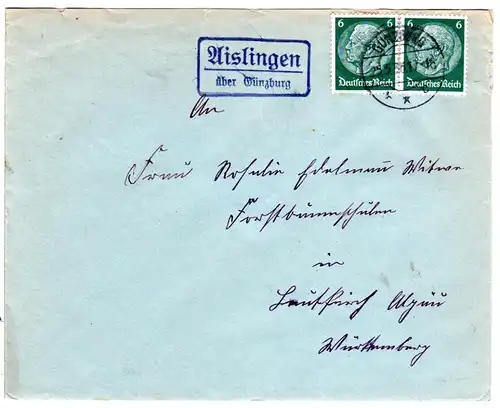 6 6
Deutsches Reich Deutsches Reich
GÜNZBURG
Aislingen
über Günzburg
An
Frau Rosalie Edelmann Witwe
Forstbaumschulen
in
Leutkirch Algäu
Württemberg